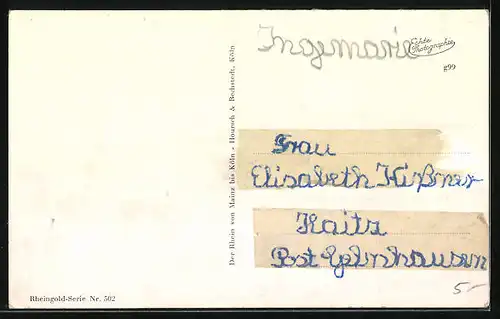 Ingemarie
Echte Photographie
g99
Der Rhein von Mainz bis Köln - Hoursch & Bechstedt, Köln
Frau
Elisabeth
Kaitz
Post
5-
Rheingold-Serie Nr. 502